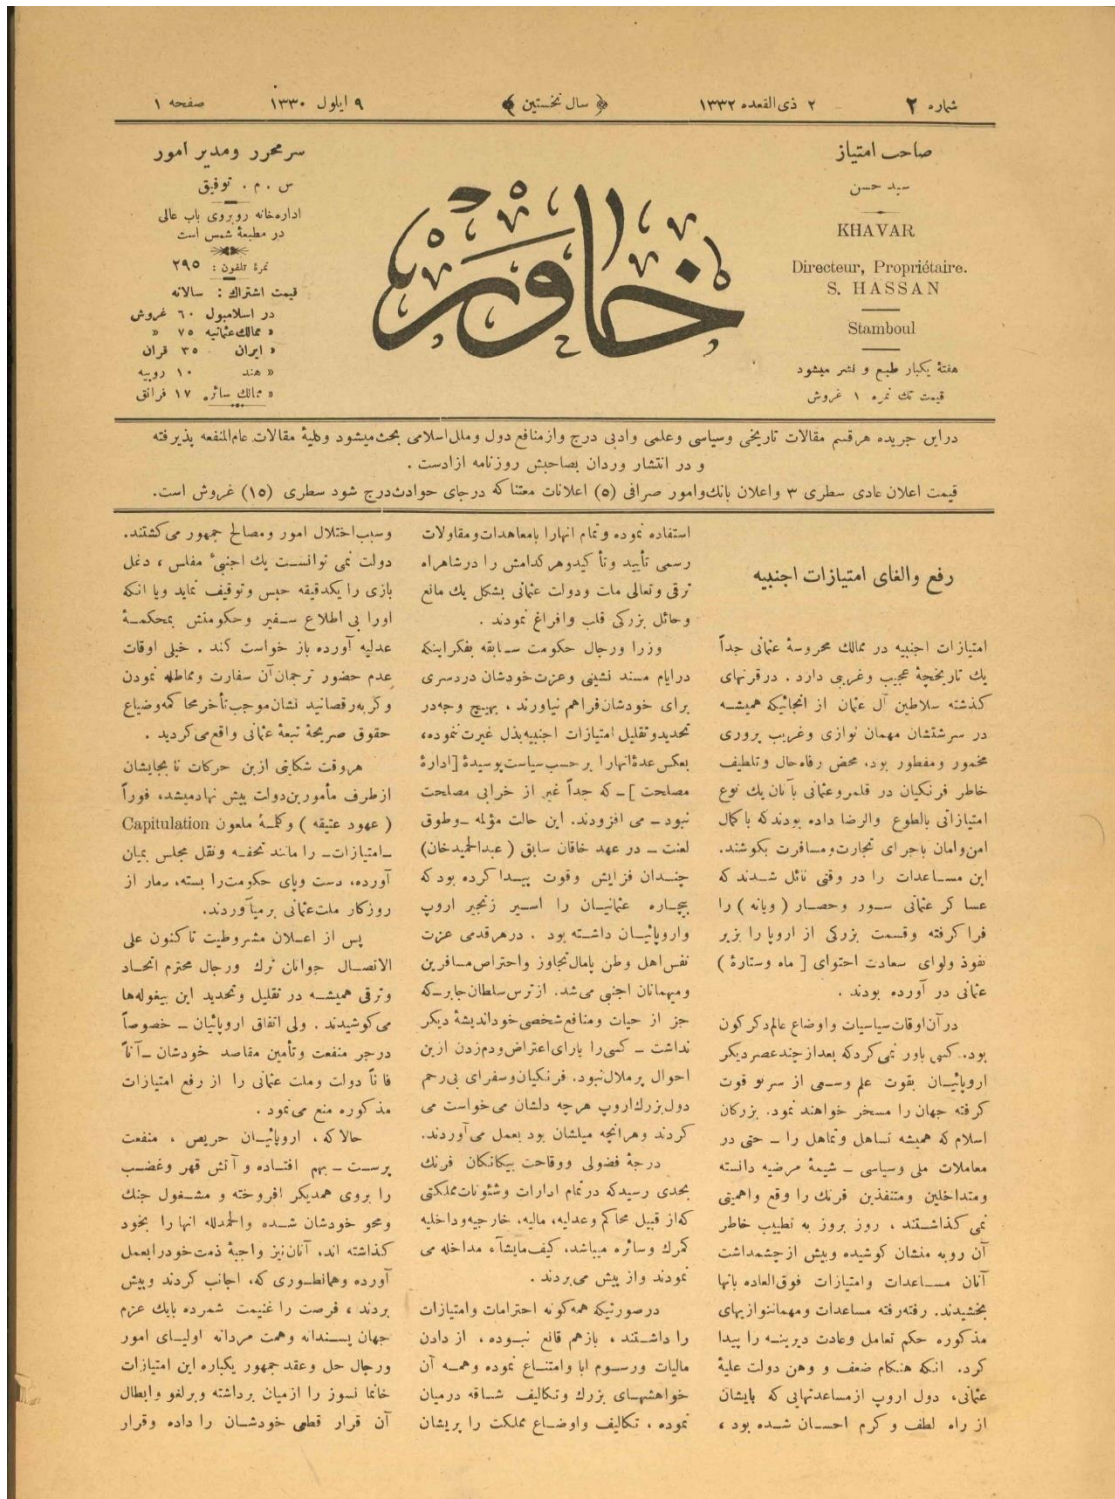 شماره ۲
۲ ذی القعده ۱۳۳۲
﴿ سال نخستین ﴾
۹ ایلول ۱۳۳۰
صفحه ۱
صاحب امتیاز
سید حسن
KHAVAR
Directeur, Propriétaire.
S. HASSAN
Stamboul
هفتهٔ یکبار طبع و نشر میشود
قیمت تك نمره ۱ غروش
خاور
سر محرر ومدیر امور
س . م . توفیق
اداره خانه روبروی باب عالی
در مطبعهٔ شمس است
نمرهٔ تلفون : ۲۹۵
قیمت اشتراك : سالانه
در اسلامبول ٦۰ غروش
« ممالك عثمانیه ۷۵ «
« ایران ۳۵ قران
« هند ۱۰ روپیه
« ممالك سائره ۱۷ فرانق
دراین جریده هرقسم مقالات تاریخی وسیاسی وعلمی وادبی درج وازمنافع دول وملل اسلامی بحث میشود وکلیهٔ مقالات عام المنفعه پذیرفته
و در انتشار وردان بصاحبش روزنامه ازادست .
قیمت اعلان عادی سطری ۳ واعلان بانك وامور صرافی (۵) اعلانات معتنا که درجای حوادث درج شود سطری (۱۵) غروش است.
رفع والغای امتیازات اجنبیه
امتیازات اجنبیه در ممالك محروسهٔ عثمانی جداً
یك تاریخچهٔ عجیب وغریبی دارد . در قرنهای
کذشته سلاطین آل عثمان از انجائیکه همیشه
در سرشتشان مهمان نوازی وغریب پروری
مخمور ومفطور بود، محض رفاه حال وتلطیف
خاطر فرنکیان در قلمرو عثمانی بآنان یك نوع
امتیازاتی بالطوع والرضا داده بودند که باکمال
امن وامان باجرای تجارت ومسافرت بکوشند.
این مساعدات را در وقتی نائل شدند که
عساکر عثمانی سور وحصار ( ویانه ) را
فراکرفته وقسمت بزرکی از اروپا را بزیر
نفوذ ولوای سعادت احتوای [ ماه وستارهٔ ]
عثمانی در آورده بودند .
در آن اوقات سیاسیات واوضاع عالم دکرکون
بود. کسی باور نمی کرد که بعد از چند عصر دیکر
اروپائیان بقوت علم وسعی از سر نو قوت
کرفته جهان را مسخر خواهند نمود. بزرکان
اسلام که همیشه تساهل وتماهل را ــ حتی در
معاملات ملی وسیاسی ــ شیمهٔ مرضیه دانسته
ومتداخلین ومتنفذین فرنك را وقع واهمیتی
نمی کذاشتند ، روز بروز به تطییب خاطر
آن روبه منشان کوشیده وبیش از چشمداشت
آنان مساعدات وامتیازات فوق العاده بانها
بخشیدند. رفته رفته مساعدات ومهماننوازیهای
مذکوره حکم تعامل وعادت دیرینه را پیدا
کرد. انکه هنکام ضعف و وهن دولت علیهٔ
عثمانی، دول اروپ ازمساعدتهایی که بایشان
از راه لطف و کرم احسان شده بود ،
استفاده نموده وتمام انهارا بامعاهدات ومقاولات
رسمی تأیید وتأکید وهرکدامش را درشاهراه
ترقی وتعالی ملت ودولت عثمانی بشکل یك مانع
وحائل بزرکی قلب وافراغ نمودند .
وزرا ورجال حکومت سابقه بفکر اینکه
درایام مسند نشینی وعزت خودشان دردسری
برای خودشان فراهم نیاورند ، بهیچ وجه در
تحدید وتقلیل امتیازات اجنبیه بذل غیرت ننموده،
بعکس عدهٔ انهارا بر حسب سیاست پوسیدهٔ [ادارهٔ
مصلحت ] ــ که جداً غیر از خرابی مصلحت
نبود ــ می افزودند. این حالت مؤلمه ــ وطوق
لعنت ــ در عهد خاقان سابق ( عبدالحمیدخان)
چندان فزایش وقوت پیدا کرده بود که
بیچاره عثمانیان را اسیر زنجیر اروپ
واروپائیان داشته بود . درهر قدمی عزت
نفس اهل وطن پامال تجاوز واحتراص مسافرین
ومیهمانان اجنبی می شد. از ترس سلطان جابر ــ که
جز از حیات ومنافع شخصی خود اندیشهٔ دیکر
نداشت ــ کسی را یارای اعتراض ودم زدن ازین
احوال پرملال نبود. فرنکیان وسفرای بی رحم
دول بزرك اروپ هرچه دلشان می خواست می
کردند وهر انچه میلشان بود بعمل می آوردند.
درجهٔ فضولی ووقاحت بیکانکان فرنك
بحدی رسید که در تمام ادارات وشئونات مملکتی
که از قبیل محاکم وعدلیه، مالیه، خارجیه وداخلیه
کمرك وسائره میباشد، کیف مایشآء مداخله می
نمودند واز پیش می بردند .
درصورتیکه همه کونه احترامات وامتیازات
را داشتند ، بازهم قانع نبوده ، از دادن
مالیات ورسوم ابا وامتناع نموده وهمه آن
خواهشهای بزرك وتکالیف شاقه درمیان
نموده ، تکالیف واوضاع مملکت را پریشان
وسبب اختلال امور ومصالح جمهور می کشتند.
دولت نمی توانست یك اجنبیٔ مفلس ، دغل
بازی را یکدقیقه حبس وتوقیف نماید ویا انکه
اورا بی اطلاع سفیر وحکومتش بمحکمهٔ
عدلیه آورده باز خواست کند . خیلی اوقات
عدم حضور ترجمان آن سفارت ومماطله نمودن
وکربه رقصانید نشان موجب تأخر محاکمه وضیاع
حقوق صریحهٔ تبعهٔ عثمانی واقع می کردید .
هروقت شکایتی ازین حرکات نابجایشان
از طرف مأمورین دولت پیش نهاد میشد، فوراً
( عهود عتیقه ) وکلمهٔ ملعون Capitulation
ــ امتیازات ــ را مانند تحفه ونقل مجلس بمیان
آورده، دست وپای حکومت را بسته، دمار از
روزکار ملت عثمانی برمیآوردند.
پس از اعلان مشروطیت تاکنون علی
الاتصال جوانان ترك ورجال محترم اتحاد
وترقی همیشه در تقلیل وتحدید این بیغوله ها
می کوشیدند . ولی اتفاق اروپائیان ــ خصوصاً
درجر منفعت وتأمین مقاصد خودشان ــ آناً
فاناً دولت وملت عثمانی را از رفع امتیازات
مذکوره منع می نمود .
حالا که، اروپائیان حریص ، منفعت
پرست ــ بهم افتاده و آتش قهر وغضب
را بروی همدیکر افروخته و مشغول جنك
ومحو خودشان شده والحمدلله انها را بخود
کذاشته اند، آنان نیز واجبهٔ ذمت خودرا بعمل
آورده وهمانطوری که، اجانب کردند وپیش
بردند ، فرصت را غنیمت شمرده بایك عزم
جهان پسندانه وهمت مردانه اولیای امور
ورجال حل وعقد جمهور یکباره این امتیازات
خانمانسوز را ازمیان برداشته وبرلغو وابطال
آن قرار قطعی خودشان را داده وقرار